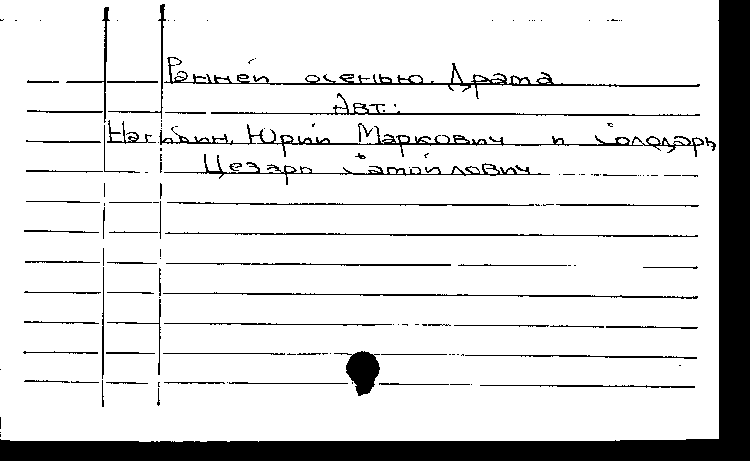 Ранней осенью. Драма
Авт.:
Нагибин, Юрий Маркович и Солодарь
Цезарь Самойлович